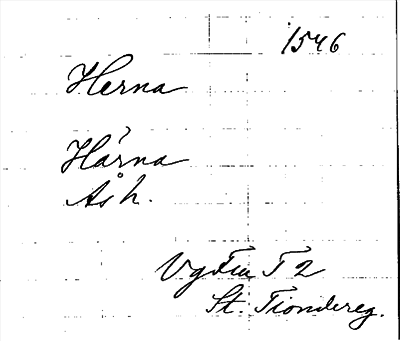 1546
Herna
Härna
Ås h.
Vg Fru T 2
St. Tiondereg.